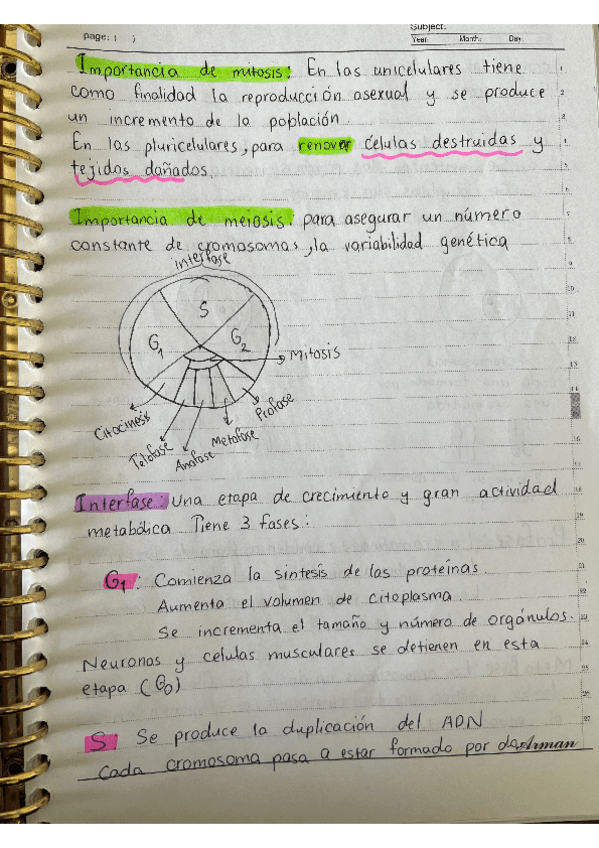 page: ( )
Subject:
Year. Month: Day.
Importancia de mitosis: En las unicelulares tiene
como finalidad la reproducción asexual y se produce
un incremento de la población.
En las pluricelulares, para renovar celulas destruidas y
tejidos dañados.
Importancia de meiosis: para asegurar un número
constante de cromosomas, la variabilidad genética
interfase
S
G1
G2
Mitosis
Citocinesis
Telofase
Anafase
Metofase
Profase
Interfase: Una etapa de crecimiento y gran actividad
metabólica Tiene 3 fases:
G1: Comienza la sintesis de las proteínas.
Aumenta el volumen de citoplasma.
Se incrementa el tamaño y número de orgánulos.
Neuronas y celulas musculares se detienen en esta
etapa (G0)
S: Se produce la duplicación del ADN
Cada cromosoma pasa a estar formado por